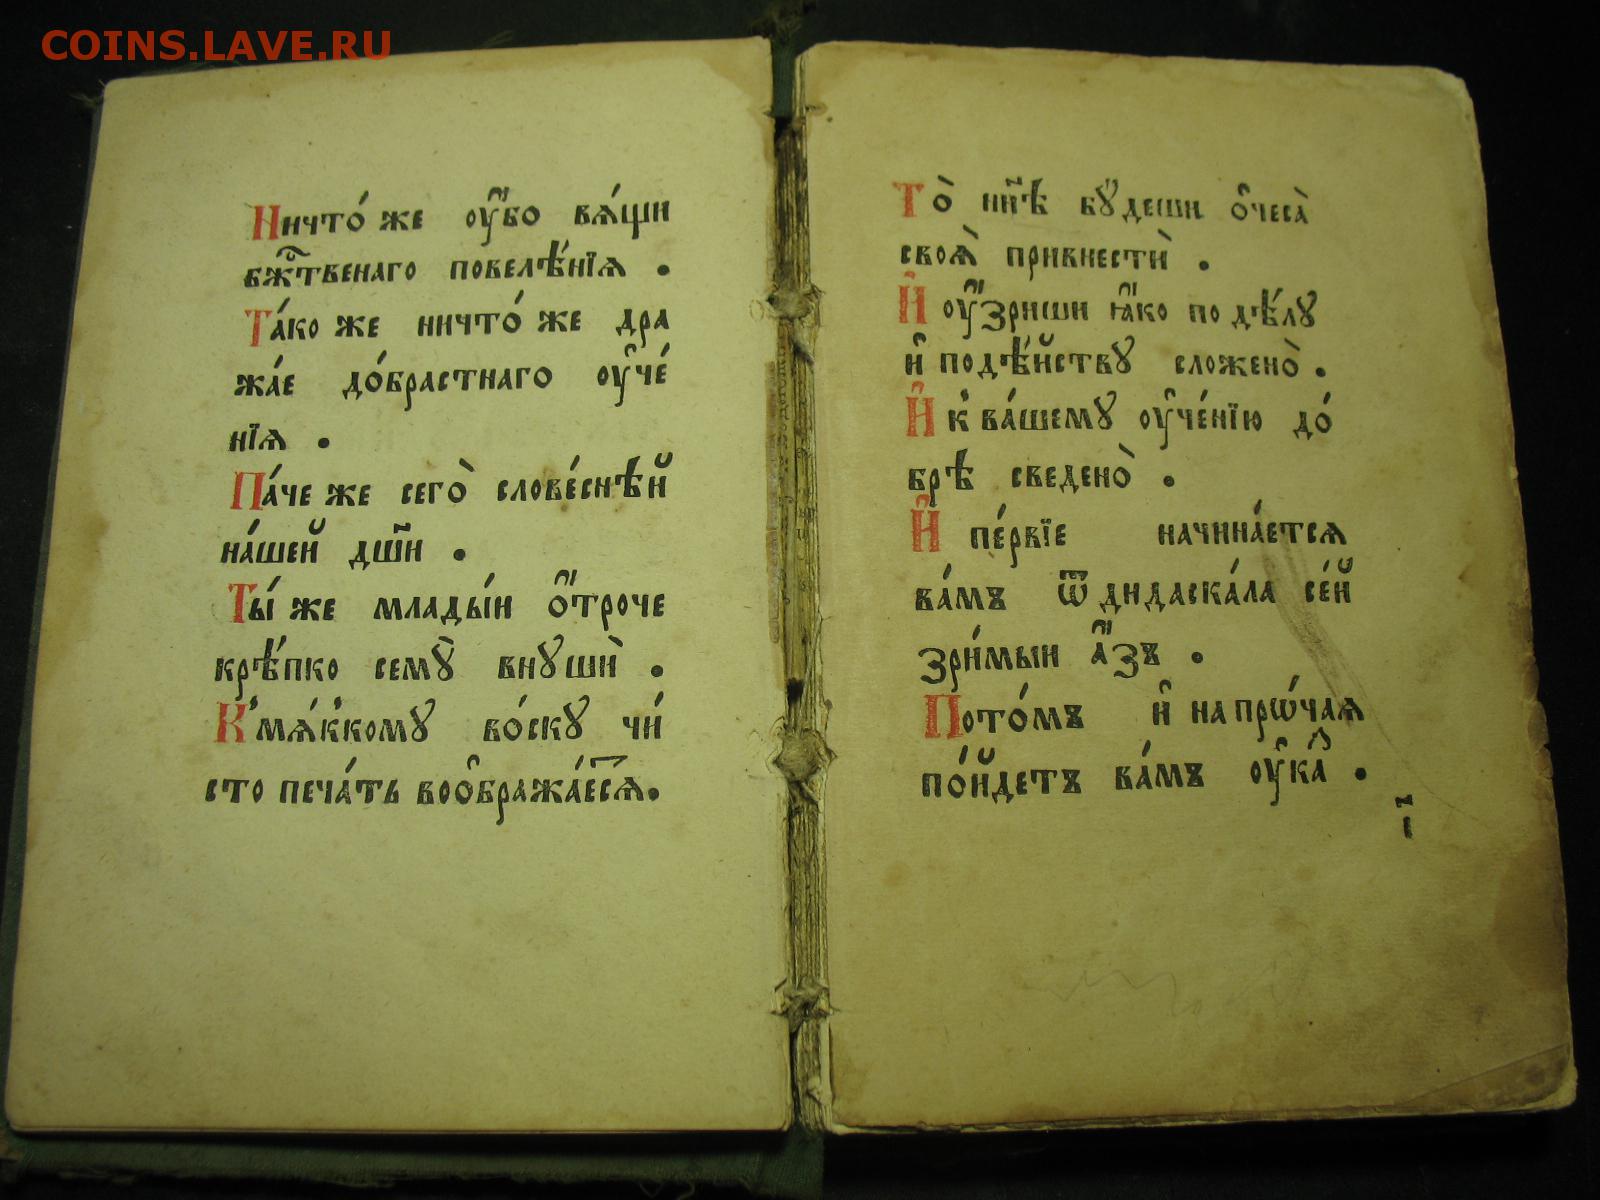 COINS.LAVE.RU
Ничто́ же ᲂу҆́бо вѧ́щи
бж҃твенаго повелѣ́нїѧ .
Та́ко же ничто́ же дра
жа́е до́брастнаго ᲂу҆че́
нїѧ .
Па́че же сего̀ слове́снѣй
на́шей дш҃и .
Ты́ же млады́и ѻ҆́троче
крѣ́пко семꙋ̀ внꙋшѝ .
К̾ мѧ́к̾комꙋ во́скꙋ чи́
сто печа́ть воѻбража́есѧ.
То̀ нн҃ѣ бꙋ́деши ѻ҆чеса̀
своѧ̀ привнестѝ .
И҆ ᲂу҆́зриши ꙗ҆́ко по дѣ́лꙋ
и҆ подѣ́йствꙋ сложено̀ .
И҆ к̾ ва́шемꙋ ᲂу҆че́нїю до́
брѣ сведено̀ .
И҆ пе́рвїе начина́етсѧ
ва́мъ ѿ дидаска́ла се́й
зри́мыи а҆́зъ .
Пото́мъ и҆ на прѡ́чаѧ
по́йдетъ ва́мъ ᲂу҆каⷧ .
і҃